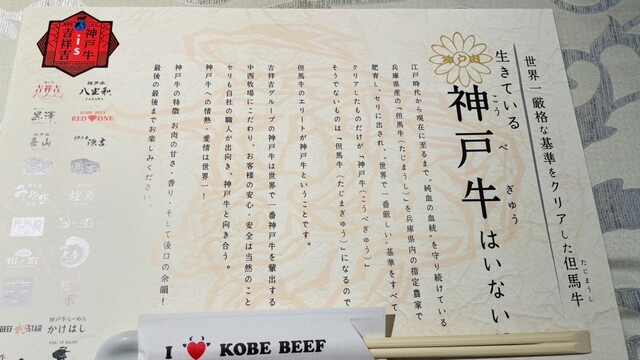 世界一厳格な基準をクリアした但馬牛
たじまうし
生きている
神戸牛はいない
こうべぎゅう
江戸時代から現在に至るまで、純血の血統を守り続けている
兵庫県産の「但馬牛(たじまうし)」を兵庫県内の指定農家で
肥育し、セリに出され、世界で一番厳しい基準をすべて
クリアしたものだけが「神戸牛(こうべぎゅう)」
そうでないものは「但馬牛(たじまぎゅう)」になるので
但馬牛のエリートが神戸牛ということです。
吉祥吉グループの神戸牛は世界で一番神戸牛を輩出する
中西牧場にこだわり、お客様の安心・安全は当然のこと
セリも自社の職人が出向き、神戸牛と向き合う。
神戸牛への情熱・愛情は世界一!
神戸牛の特徴 お肉の甘さ・香り・そして後口の余韻!
最後の最後までお楽しみください。
神戸牛
is
吉祥吉
吉祥吉
八坐和
RED ONE
神戸牛らーめん
かけはし
BEEF STAR
I KOBE BEEF